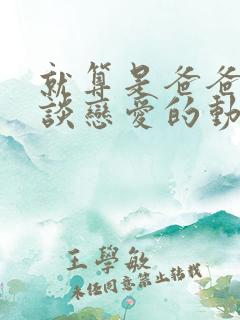 就算是爸爸
談戀愛的動
王學敏
未经同意禁止转载